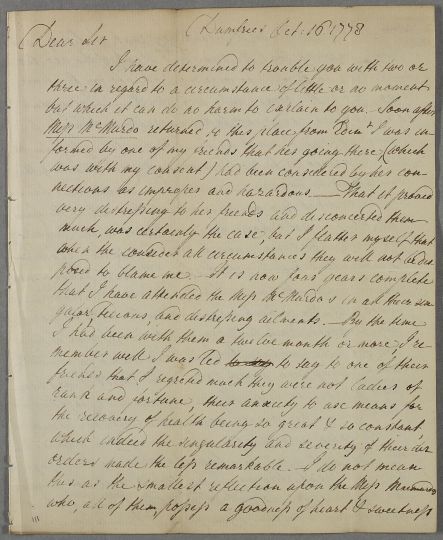 Dumfries Oct: 16 1778
Dear Sir
I have determined to trouble you with two or
three in regard to a circumstance of little or no moment
but which it can do no harm to explain to you. Soon after
Miss McMurdo returned to this place from Edinr I was in-
formed by one of my friends that her going there (which
was with my consent) had been considered by her con-
nections as improper and hazardous. — That it proved
very distressing to her friends and disconcerted them
much, was certainly the case, but I flatter myself that
when the consider all circumstances they will not be dis-
posed to blame me. It is now four years complete
that I have attended the Miss McMurdos in all their sin-
gular, tedious, and distressing ailments. — By the time
I had been with them a twelve month or more, I re-
member well I was led to say to one of their
friends that I regretted much they were not Ladies of
rank and fortune, their anxiety to use means for
the recovery of health being so great & so constant,
which indeed the singularity and severity of their dis-
orders made the less remarkable. I do not mean
this as the smallest reflection upon the Miss Mcmurdos
who, all of them, possess a goodness of heart & sweetness